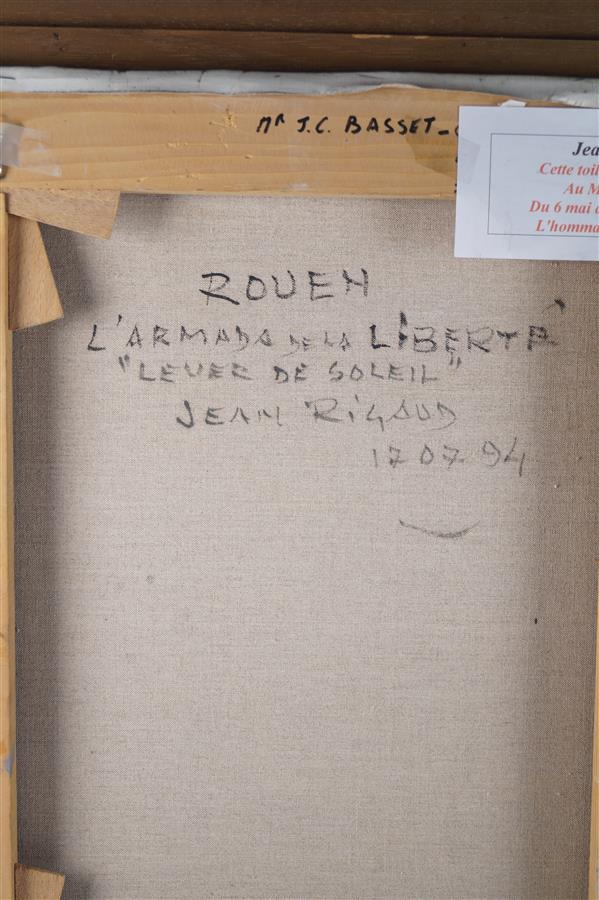 Mr J.C. BASSET-
Jea
Cette toil
Au M
Du 6 mai
L'homma
ROUEN
L'ARMADA DE LA LIBERTÉ
"LEVER DE SOLEIL"
JEAN RIGAUD
17 07 94